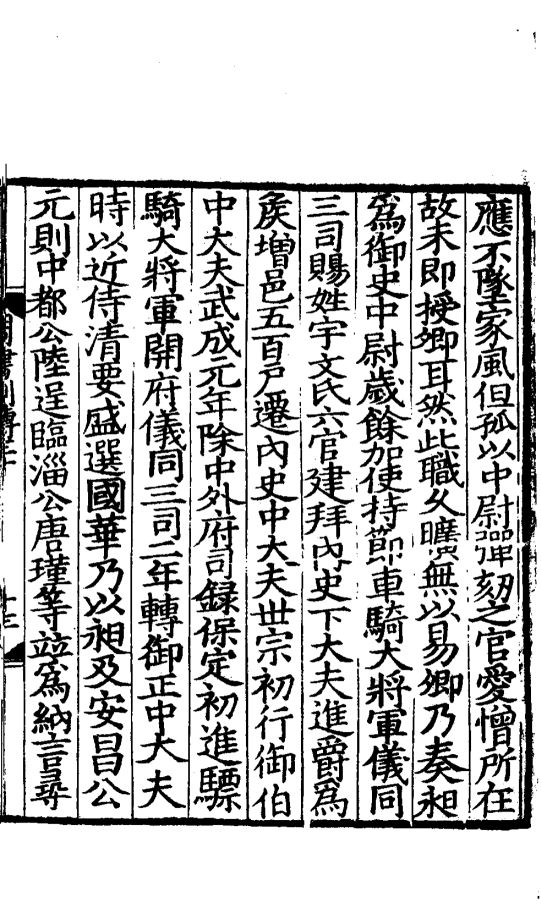 應不墜家風但孤以中尉彈劾之官愛憎所在
故未即授卿耳然此職久曠無以易卿乃奏昶
爲御史中尉歲餘加使持節車騎大將軍儀同
三司賜姓宇文氏六官建拜內史下大夫進爵爲
矦增邑五百户遷內史中大夫世宗初行御伯
中大夫武成元年除中外府司録保定初進驃
騎大將軍開府儀同三司二年轉御正中大夫
時以近侍清要盛選國華乃以昶及安昌公
元則中都公陸逞臨淄公唐瑾等竝爲納言尋
十三